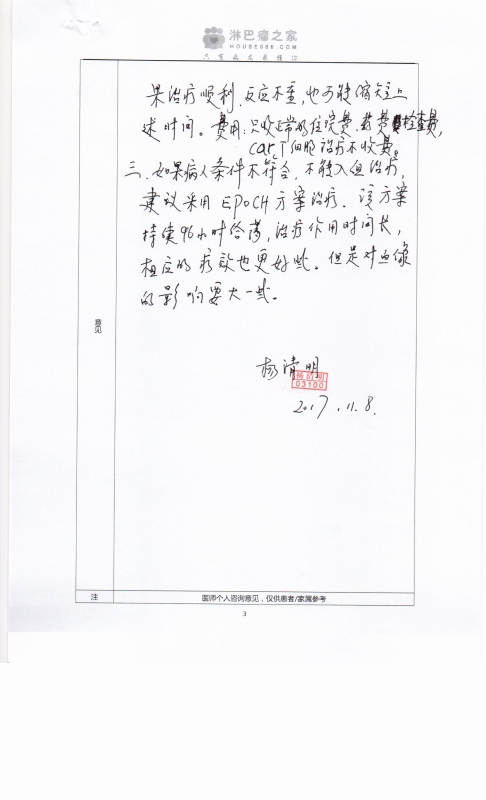 淋巴瘤之家
HOUSE086.COM
只有病友最懂你
果治疗顺利，反应不重，也可能缩短上
述时间。费用：只收正常的住院费、药费、检查费，
car T细胞治疗不收费。
三、如果病人条件不符合，不能入组治疗，
建议采用EPOCH方案治疗。该方案
持续96小时给药，治疗作用时间长，
相应的疗效也更好些。但是对血像
的影响要大一些。
意见
杨清明
杨清明
03100
2017.11.8.
注
医师个人咨询意见，仅供患者/家属参考
3